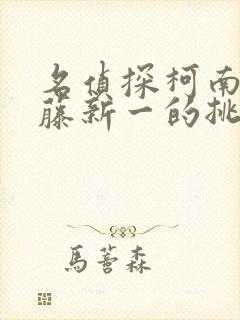 名偵探柯南
藤新一的挑
馬蓍森